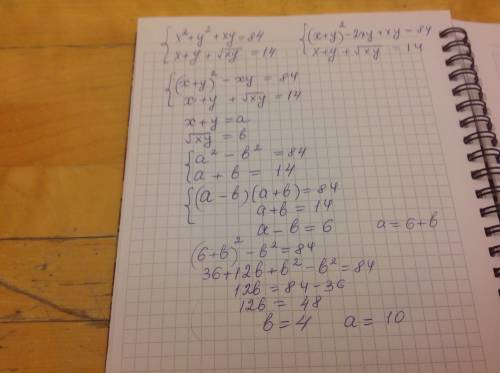 { x² + y² + xy = 84    { (x+y)² - 2xy + xy = 84
{ x + y + √xy = 14    { x + y + √xy = 14
{ (x+y)² - xy = 84
{ x + y + √xy = 14
x + y = a
√xy = b
{ a² - b² = 84
{ a + b = 14
{ (a - b)(a + b) = 84
{ a + b = 14
a - b = 6    a = 6 + b
(6 + b)² - b² = 84
36 + 12b + b² - b² = 84
12b = 84 - 36
12b = 48
b = 4    a = 10